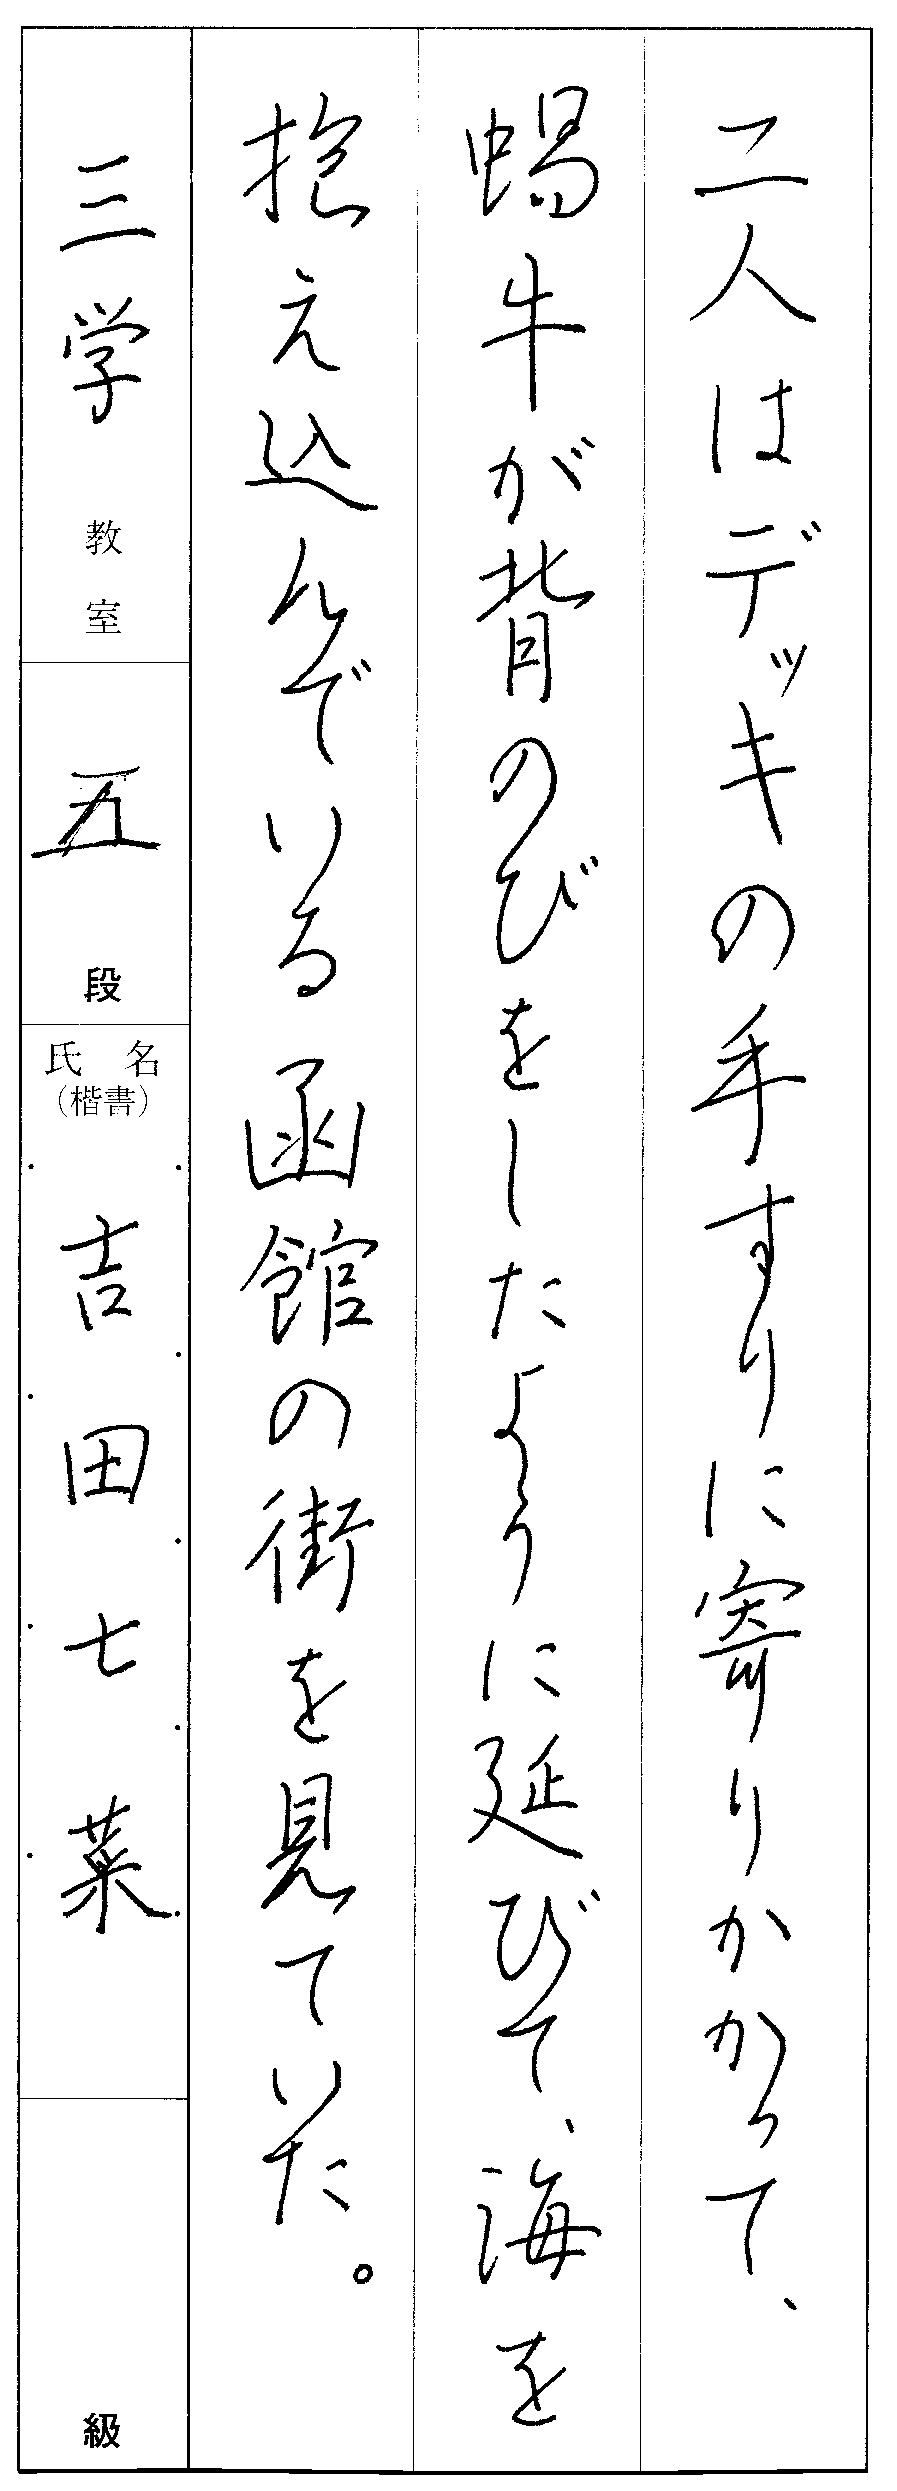 二人はデッキの手すりに寄りかかって、
蝸牛が背のびをしたように延びて、海を
抱え込んでいる函館の街を見ていた。
三学教室
五段
氏名
（楷書）
吉田七菜
級